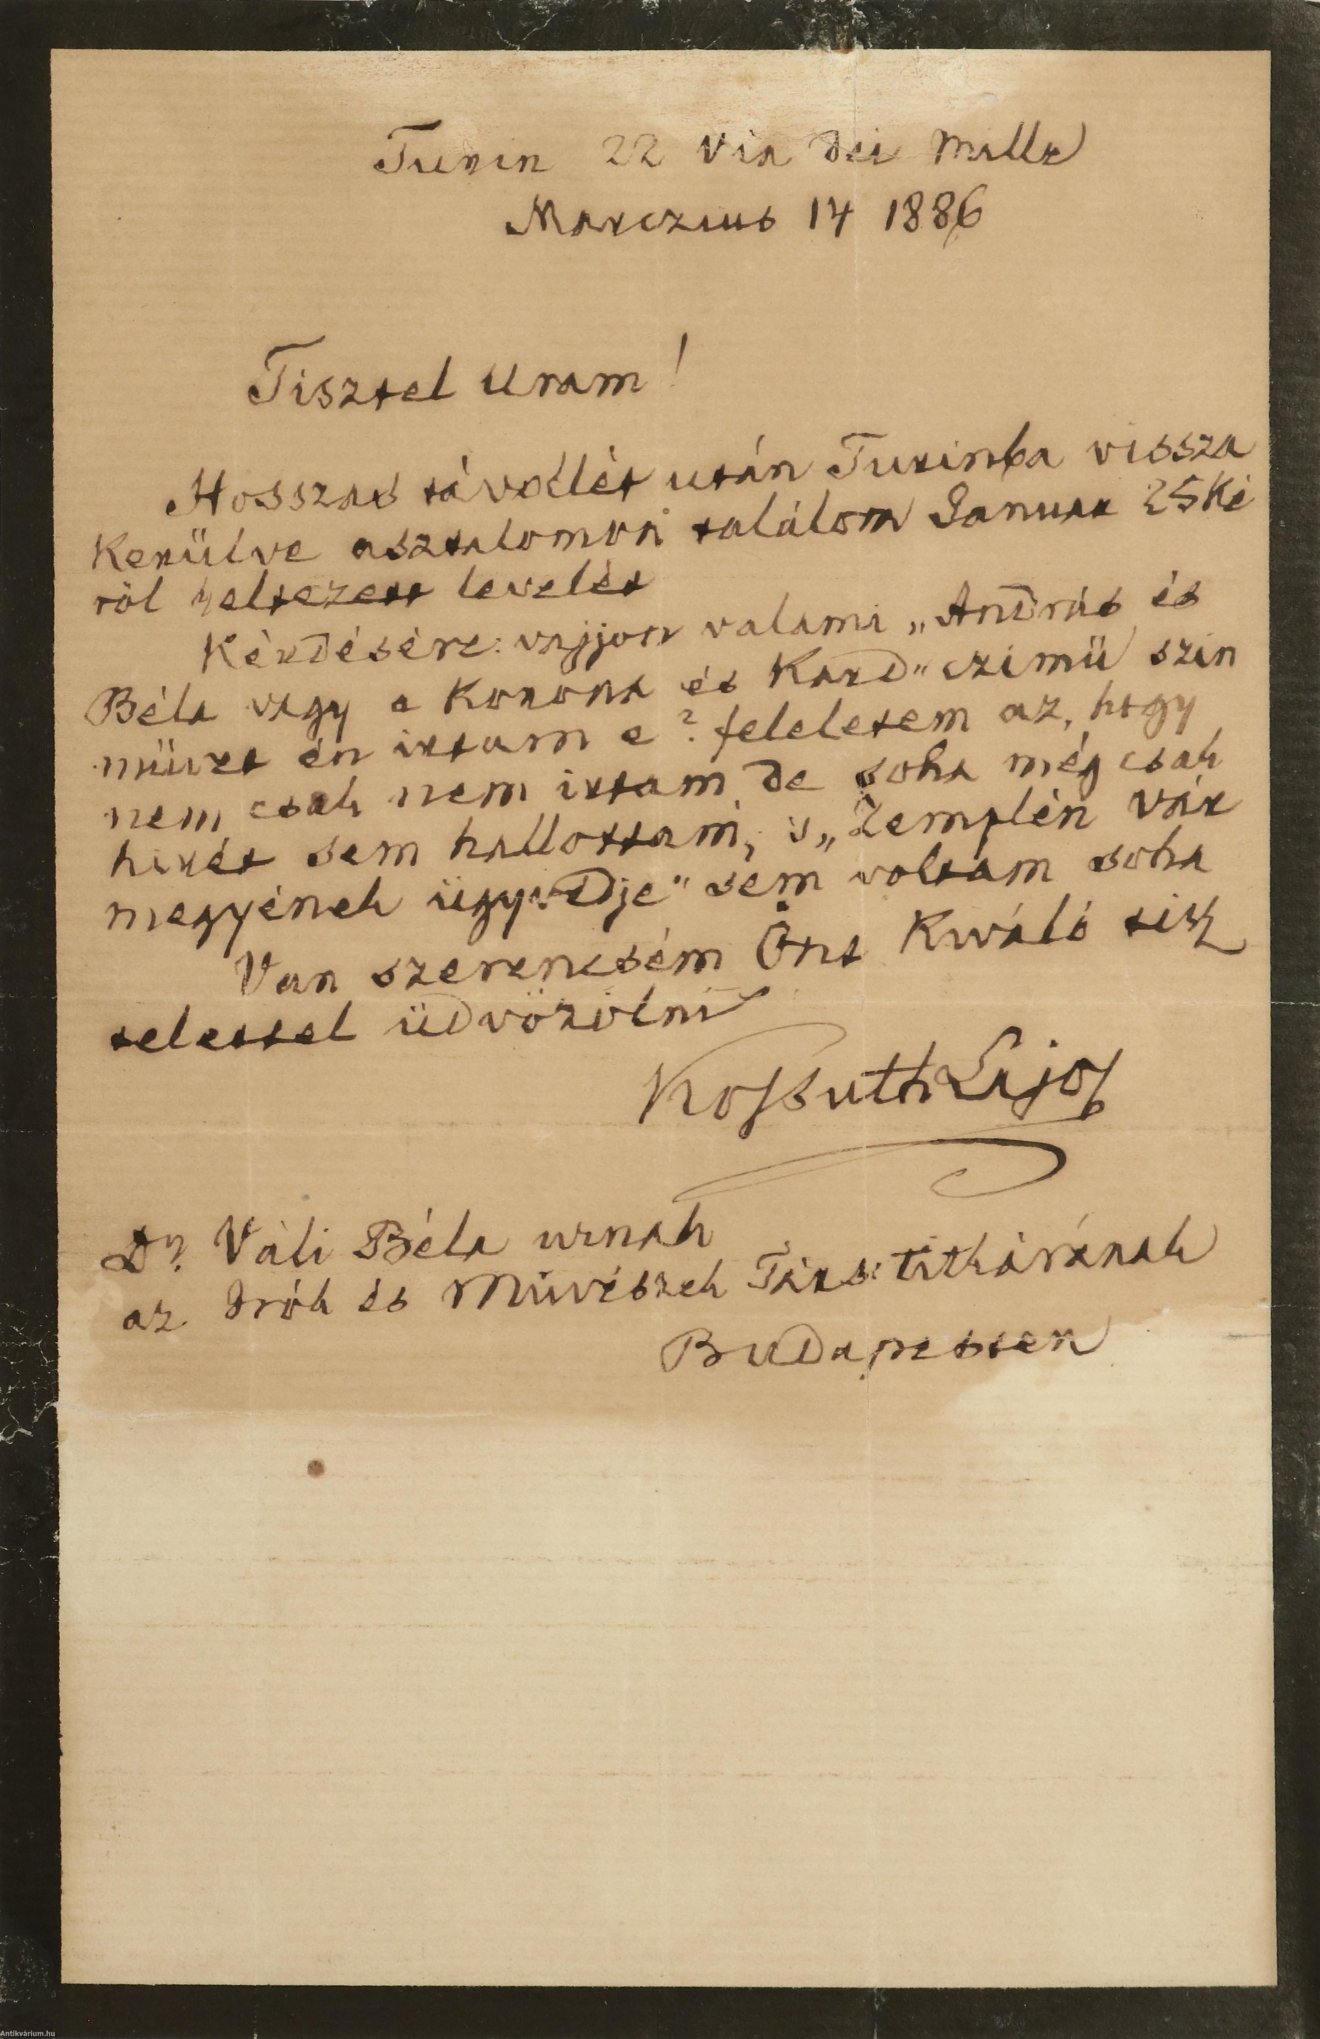 Turin 22 Via dei Mille
Marczius 14 1886
Tisztel Uram!
Hosszas távollét után Turinba vissza
kerülve asztalomon találom Januar 25ké
röl keltezett levelét
Kérdésére: vajjon valami „András és
Béla vagy a Korona és Kard" czimü szin
művet én irtam e? feleletem az, hogy
nem csak nem irtam, de soha még csak
hirét sem hallottam, s „Zemplén vár
megyének ügyvédje" sem voltam soha
Van szerencsém Önt kiváló tisz
telettel üdvözölni
Kossuth Lajos
Dr. Váli Béla urnak
az Irók és Művészek Társ: titkárának
Budapesten
Antikvárium.hu